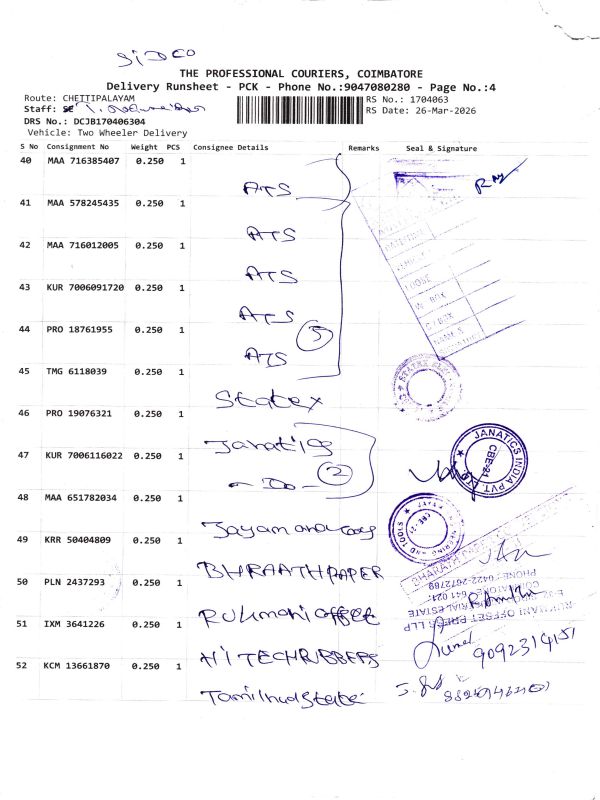 SIDCO
THE PROFESSIONAL COURIERS, COIMBATORE
Delivery Runsheet - PCK - Phone No.:9047080280 - Page No.:4
Route: CHETTIPALAYAM
RS No.: 1704063
Staff:
RS Date: 26-Mar-2026
DRS No.: DCJB170406304
Vehicle: Two Wheeler Delivery
S No Consignment No Weight PCS Consignee Details Remarks Seal & Signature
40 MAA 716385407 0.250 1
ATS
41 MAA 578245435 0.250 1
ATS
42 MAA 716012005 0.250 1
ATS
43 KUR 7006091720 0.250 1
ATS
44 PRO 18761955 0.250 1
5
ATS
45 TMG 6118039 0.250 1
Statex
46 PRO 19076321 0.250 1
Janatics
JANATICS INDIA PVT.
CBE-21
47 KUR 7006116022 0.250 1
- Do -
2
48 MAA 651782034 0.250 1
49 KRR 50404809 0.250 1
BHRAATH PAPER
PHONE: 0422-2672789
50 PLN 2437293 0.250 1
Rukmani offset
RUKMANI OFFSET PRESS LLP
51 IXM 3641226 0.250 1
HITECH RUBBERS
9092314151
52 KCM 13661870 0.250 1
Tamilnadu State